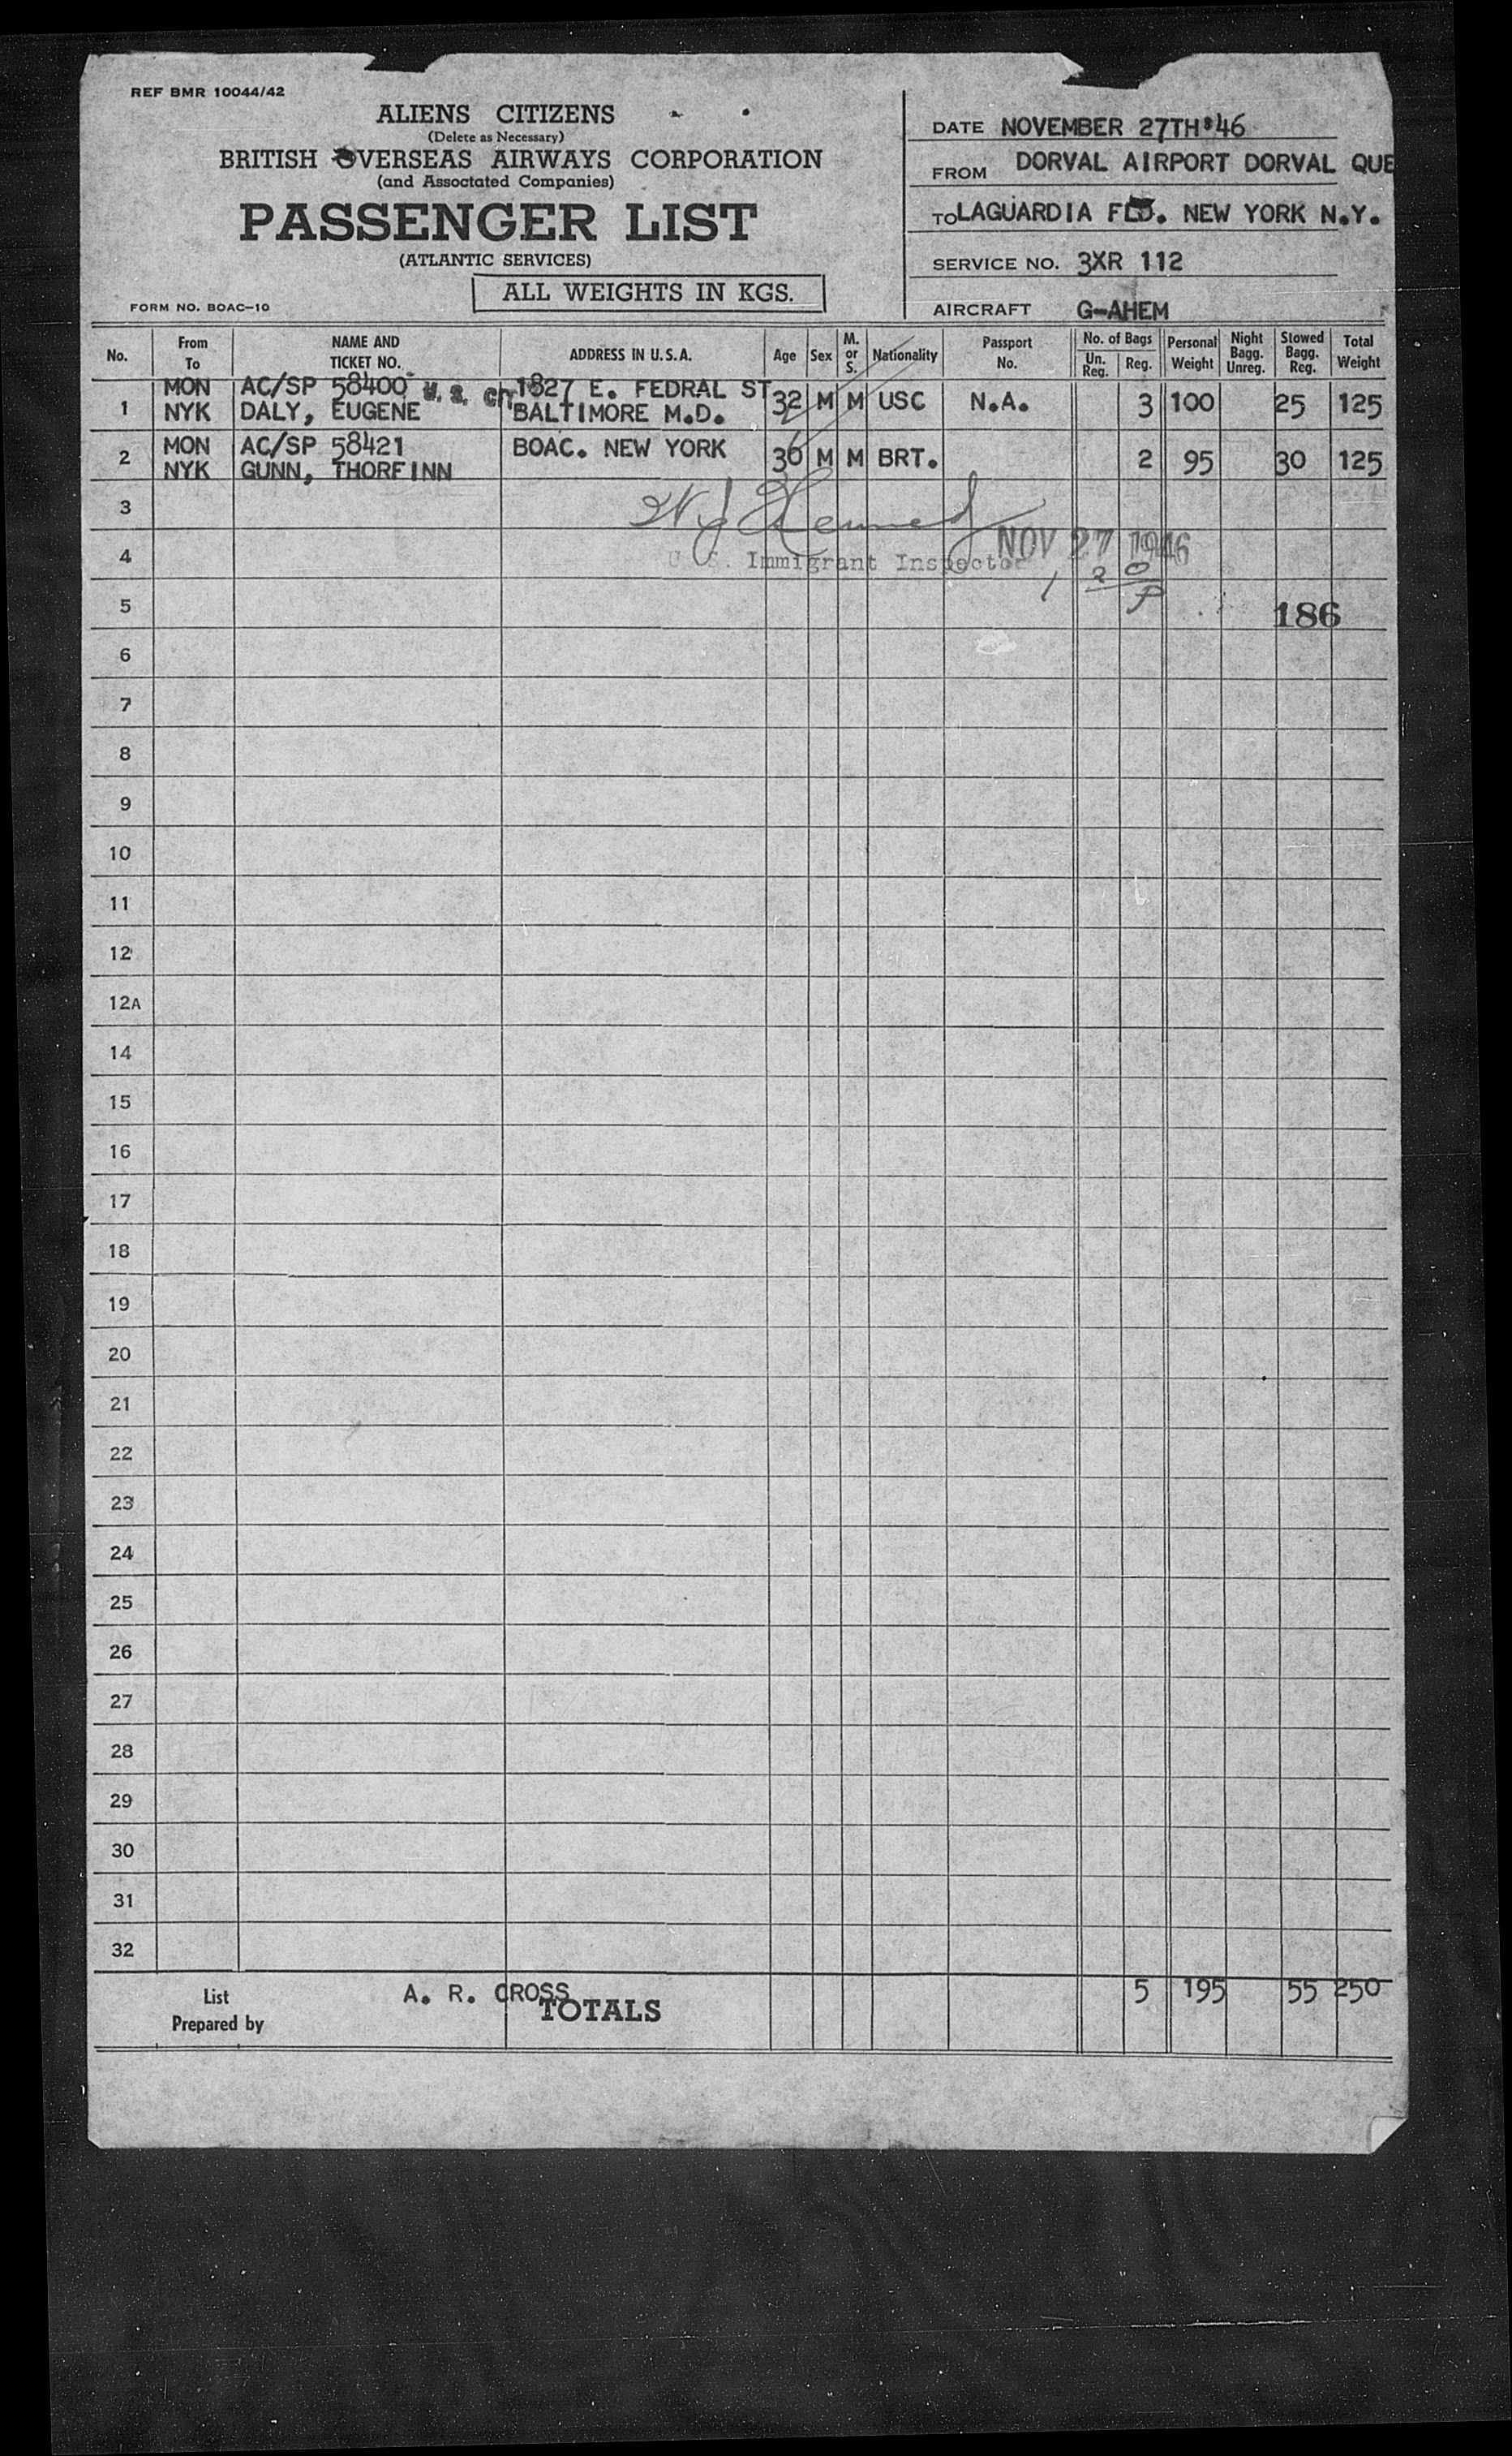 REF BMR 10044/42
ALIENS CITIZENS
(Delete as Necessary)
BRITISH OVERSEAS AIRWAYS CORPORATION
(and Assoctated Companies)
PASSENGER LIST
(ATLANTIC SERVICES)
ALL WEIGHTS IN KGS.
FORM NO. BOAC-10
DATE NOVEMBER 27TH'46
FROM DORVAL AIRPORT DORVAL QUE
TO LAGUARDIA FLD. NEW YORK N.Y.
SERVICE NO. 3XR 112
AIRCRAFT G-AHEM
No. From To NAME AND TICKET NO. ADDRESS IN U.S.A. Age Sex M. or S. Nationality Passport No. No. of Bags Un. Reg. Reg. Personal Weight Night Bagg. Unreg. Stowed Bagg. Reg. Total Weight
MON AC/SP 58400 U. S. CIT 1827 E. FEDRAL ST
1 NYK DALY, EUGENE BALTIMORE M.D. 32 M M USC N.A. 3 100 25 125
MON AC/SP 58421 BOAC. NEW YORK
2 NYK GUNN, THORFINN 36 M M BRT. 2 95 30 125
3
NOV 27 1946
4 U. S. Immigrant Inspector
5 186
6
7
8
9
10
11
12
12A
14
15
16
17
18
19
20
21
22
23
24
25
26
27
28
29
30
31
32
List Prepared by A. R. CROSS TOTALS 5 195 55 250